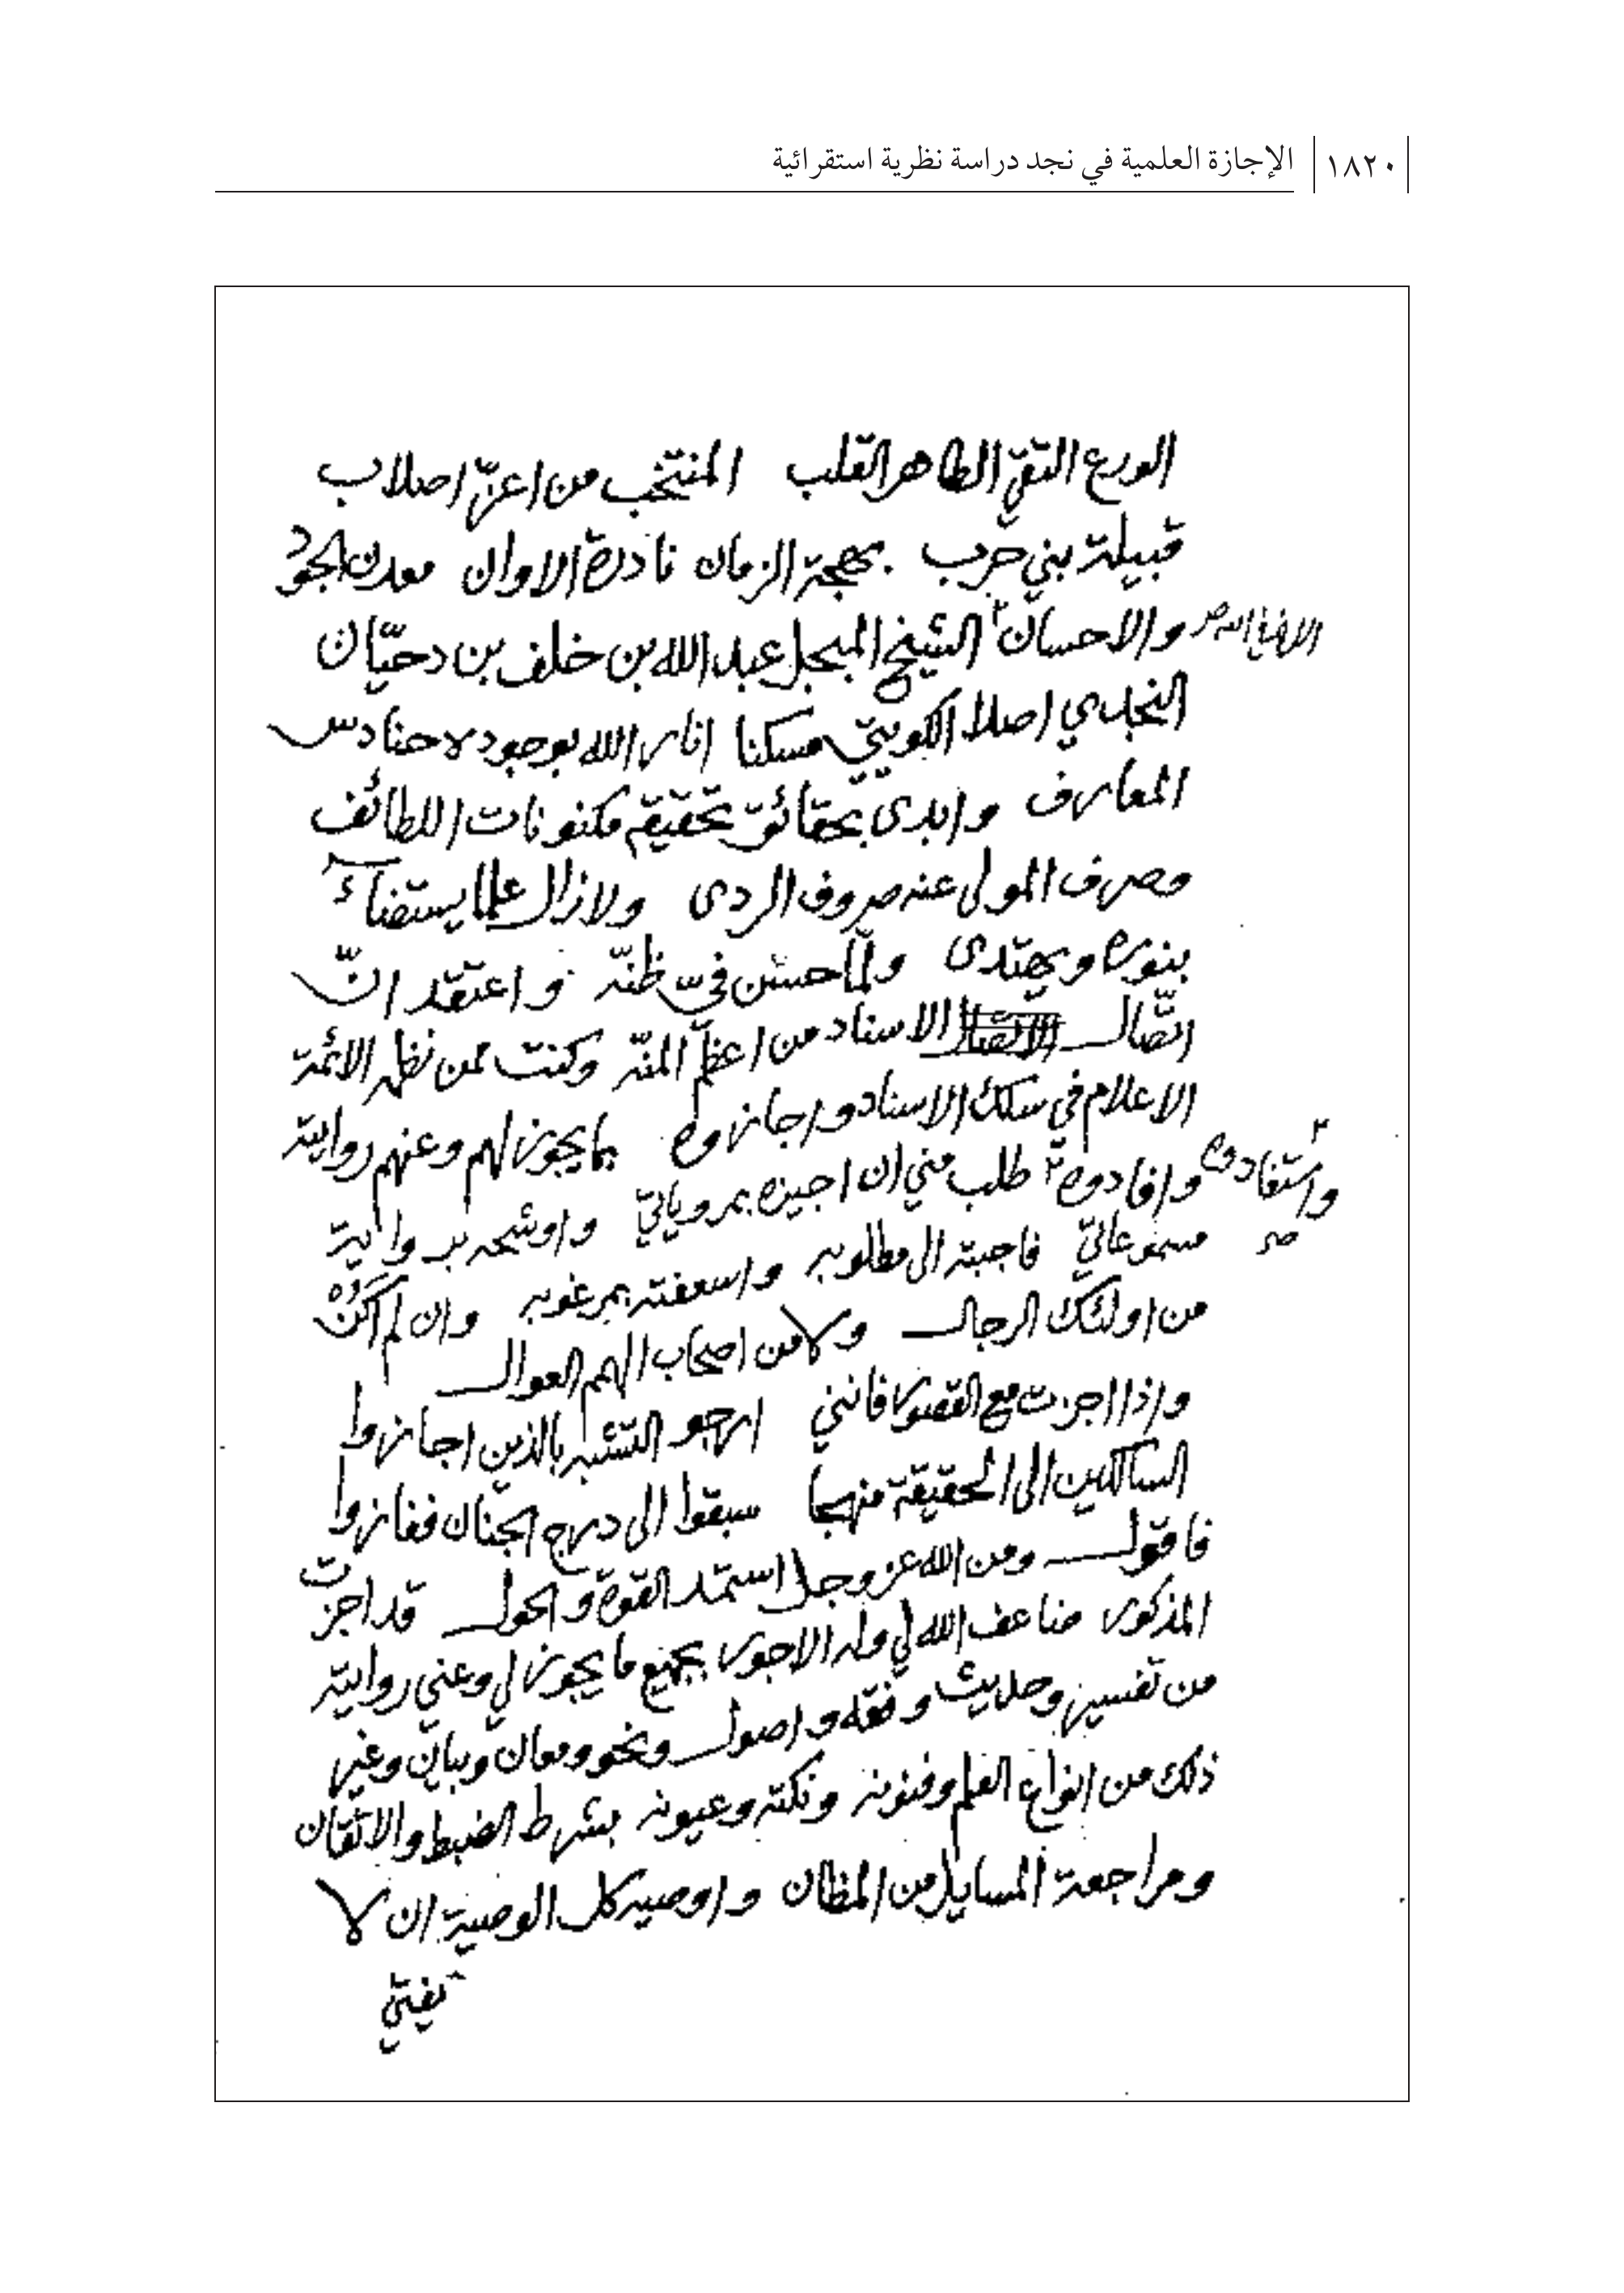 ١٨٢٠ الإجازة العلمية في نجد دراسة نظرية استقرائية
الورع التقيّ الطاهر القلب المنتخب من اعزّ اصلاب
قبيلة بني حرب بهجة الزمان نادرة الاوان معدن الجود
والاحسان الشيخ المبجل عبد الله بن خلف بن دحيّان
النجدي اصلا الكويتيّ مسكنا انار الله بوجوده حنادس
المعارف وابدى بحقائق تحقيقه مكنونات اللطائف
وصرف المولى عنه صروف الردى ولا زال علما يستضاء
بنوره ويهتدى ولمّا حسّن فيّ ظنّه واعتقد انّ
اتّصال الاسناد من اعظم المنّه وكنت ممن نظمه الائمة
الاعلام في سلك الاسناد واجازوه بما يجوز لهم وعنهم روايته
وافادوه طلب مني ان اجيزه بمروياتيّ واوشحه برواية
واستفادوه
صح
مسموعاتيّ فاجبته الى مطلوبه واسعفته بمرغوبه وان لم اكن
من اولئك الرجال ولا من اصحاب الهمم العوال
واذا اجزت مع القصور فانني ارجو التشبه بالذين اجازوا
السالكين الى الحقيقة منهجا سبقوا الى درج الجنان ففازوا
فاقول ومن الله عز وجل استمد القوة والحول قد اجزت
المذكور ضاعف الله لي وله الاجور بجميع ما يجوز لي وعني روايته
من تفسير وحديث وفقه واصول ونحو ومعان وبيان وغير
ذلك من انواع العلم وفنونه ونكته وعيونه بشرط الضبط والاتقان
ومراجعة المسايل من المظان واوصيه كل الوصية ان لا
يفتي